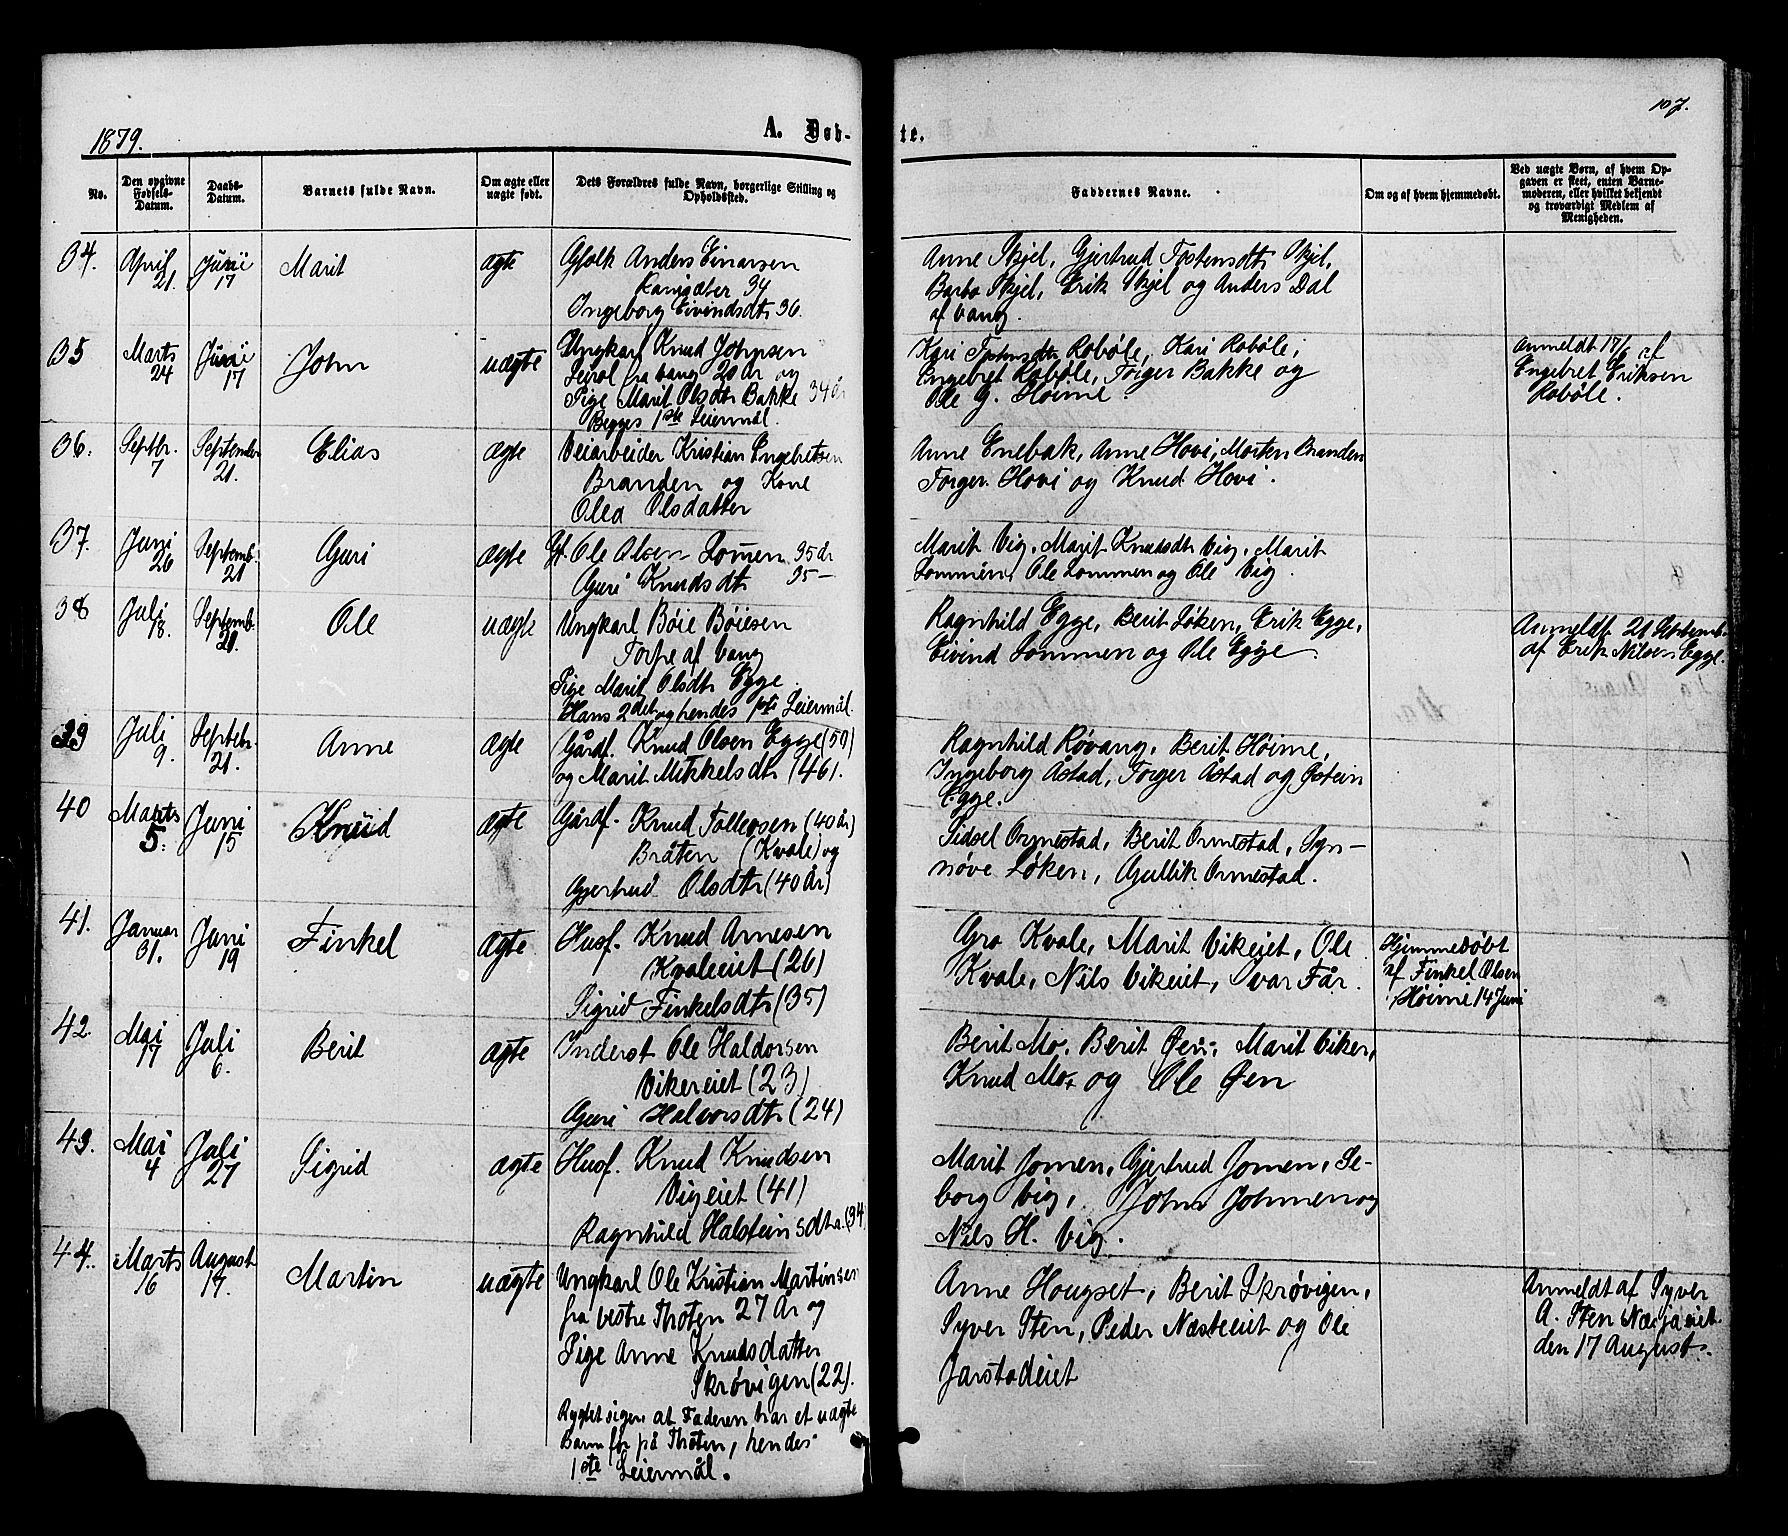 1879.
A. Døb-
te.
107.
No.
Den opgivne Fødsels-Datum.
Daabs-Datum.
Barnets fulde Navn.
Om ægte eller uægte født.
Dets Forældres fulde Navn, borgerlige Stilling og Opholdssted.
Faddernes Navne.
Om og af hvem hjemmedøbt.
Ved uægte Børn, af hvem Opgaven er skeet, enten Barnemoderen, eller hvilket bekjendt og troværdigt Medlem af Menigheden.
34. April 21. Juni 17 Marit ægte
Gfolk Anders Einarsen
34
Ingeborg Eivindsdtr 36.
Anne Skjel, Gjertrud Tostensdtr Skjel,
Barbo Skjel, Erik Skjel og Anders Dal
af Vang.
35 Marts 24 Juni 17 John uægte
Ungkarl Knud Johnsen
fra Vang 20 år og
Pige Marit Olsdtr Bakke 34 år
Begges 1ste Leiermål.
Kari Tostensdtr Robøle, Kari Robøle,
Engebret Robøle, Torger Bakke og
Ole G. Høime.
Anmeldt 17/6 af
Engebret Eriksen
Robøle.
36. Septbr. 7 September 21. Elias ægte
Veiarbeider Kristian Engebretsen
Branden og Kone
Olea Olsdatter
Anne Enebak, Anne Hovi, Morten Branden
Torger Hovi og Knud Hovi.
37. Juni 26 Septemb. 21 Guri ægte
Gf. Ole Olsen Lomen 35 år
Guri Knudsdtr 35 —
Marit Vig, Marit Knudsdtr Vig, Marit
Lommen, Ole Lommen og Ole Vig.
38 Juli 18. Septemb. 21. Ole uægte
Ungkarl Bøie Bøiesen
Torpe af Vang
Pige Marit Olsdtr Egge
Hans 2det og hendes 1ste Leiermål.
Ragnhild Egge, Berit Løken, Erik Egge,
Eivind Lommen og Ole Egge.
Anmeldt 21 Septemb.
af Erik Nilsen Egge.
39 Juli 9. Septbr. 21. Anne ægte
Gårdf. Knud Olsen Egge (50)
og Marit Mikkelsdtr (46).
Ragnhild Røvang, Berit Høime,
Ingeborg Åstad, Torger Åstad og Østein
Egge.
40 Marts 5. Juni 15 Knud ægte
Gårdf. Knud Tollevsen (40 år)
Bråten (Kvale) og
Gjertrud Olsdtr (40 År)
Sidsel Ormestad, Berit Ormestad, Syn-
nøve Løken, Gullik Ormestad.
41. Januar 31. Juni 19 Finkel ægte
Husf. Knud Arnesen
Kvaleeiet (26)
Sigrid Finkelsdtr (35)
Gro Kvale, Marit Vikeiet, Ole
Kvale, Nils Vikeiet, Ivar Får.
Hjemmedøbt
af Finkel Olsen
Høime 14 Juni
42. Mai 17 Juli 6. Berit ægte
Inderst Ole Haldorsen
Vikereiet (23)
Guri Halvorsdtr (24)
Berit Mo. Berit Øen, Marit Viker,
Knud Mo, og Ole Øen
43. Mai 4 Juli 27 Sigrid ægte
Husf. Knud Knudsen
Vigeiet (41)
Ragnhild Halsteinsdtr. (34)
Marit Jomen, Gjertrud Jomen, Se-
borg Vig, John Johmen og
Nils H. Vig.
44. Marts 16 August 17. Martin uægte
Ungkarl Ole Kristian Martinsen
fra Vestre Thoten 27 År og
Pige Anne Knudsdatter
Skrøvigen (22).
Rygtet siger at Faderen har et uægte
Barn før på Thoten, hendes
1ste Leiermål.
Anne Hougset, Berit Skrøvigen,
Syver Sten, Peder Næsteeiet og Ole
Jarstadeiet
Anmeldt af Syver
A. Sten
den 17 August.